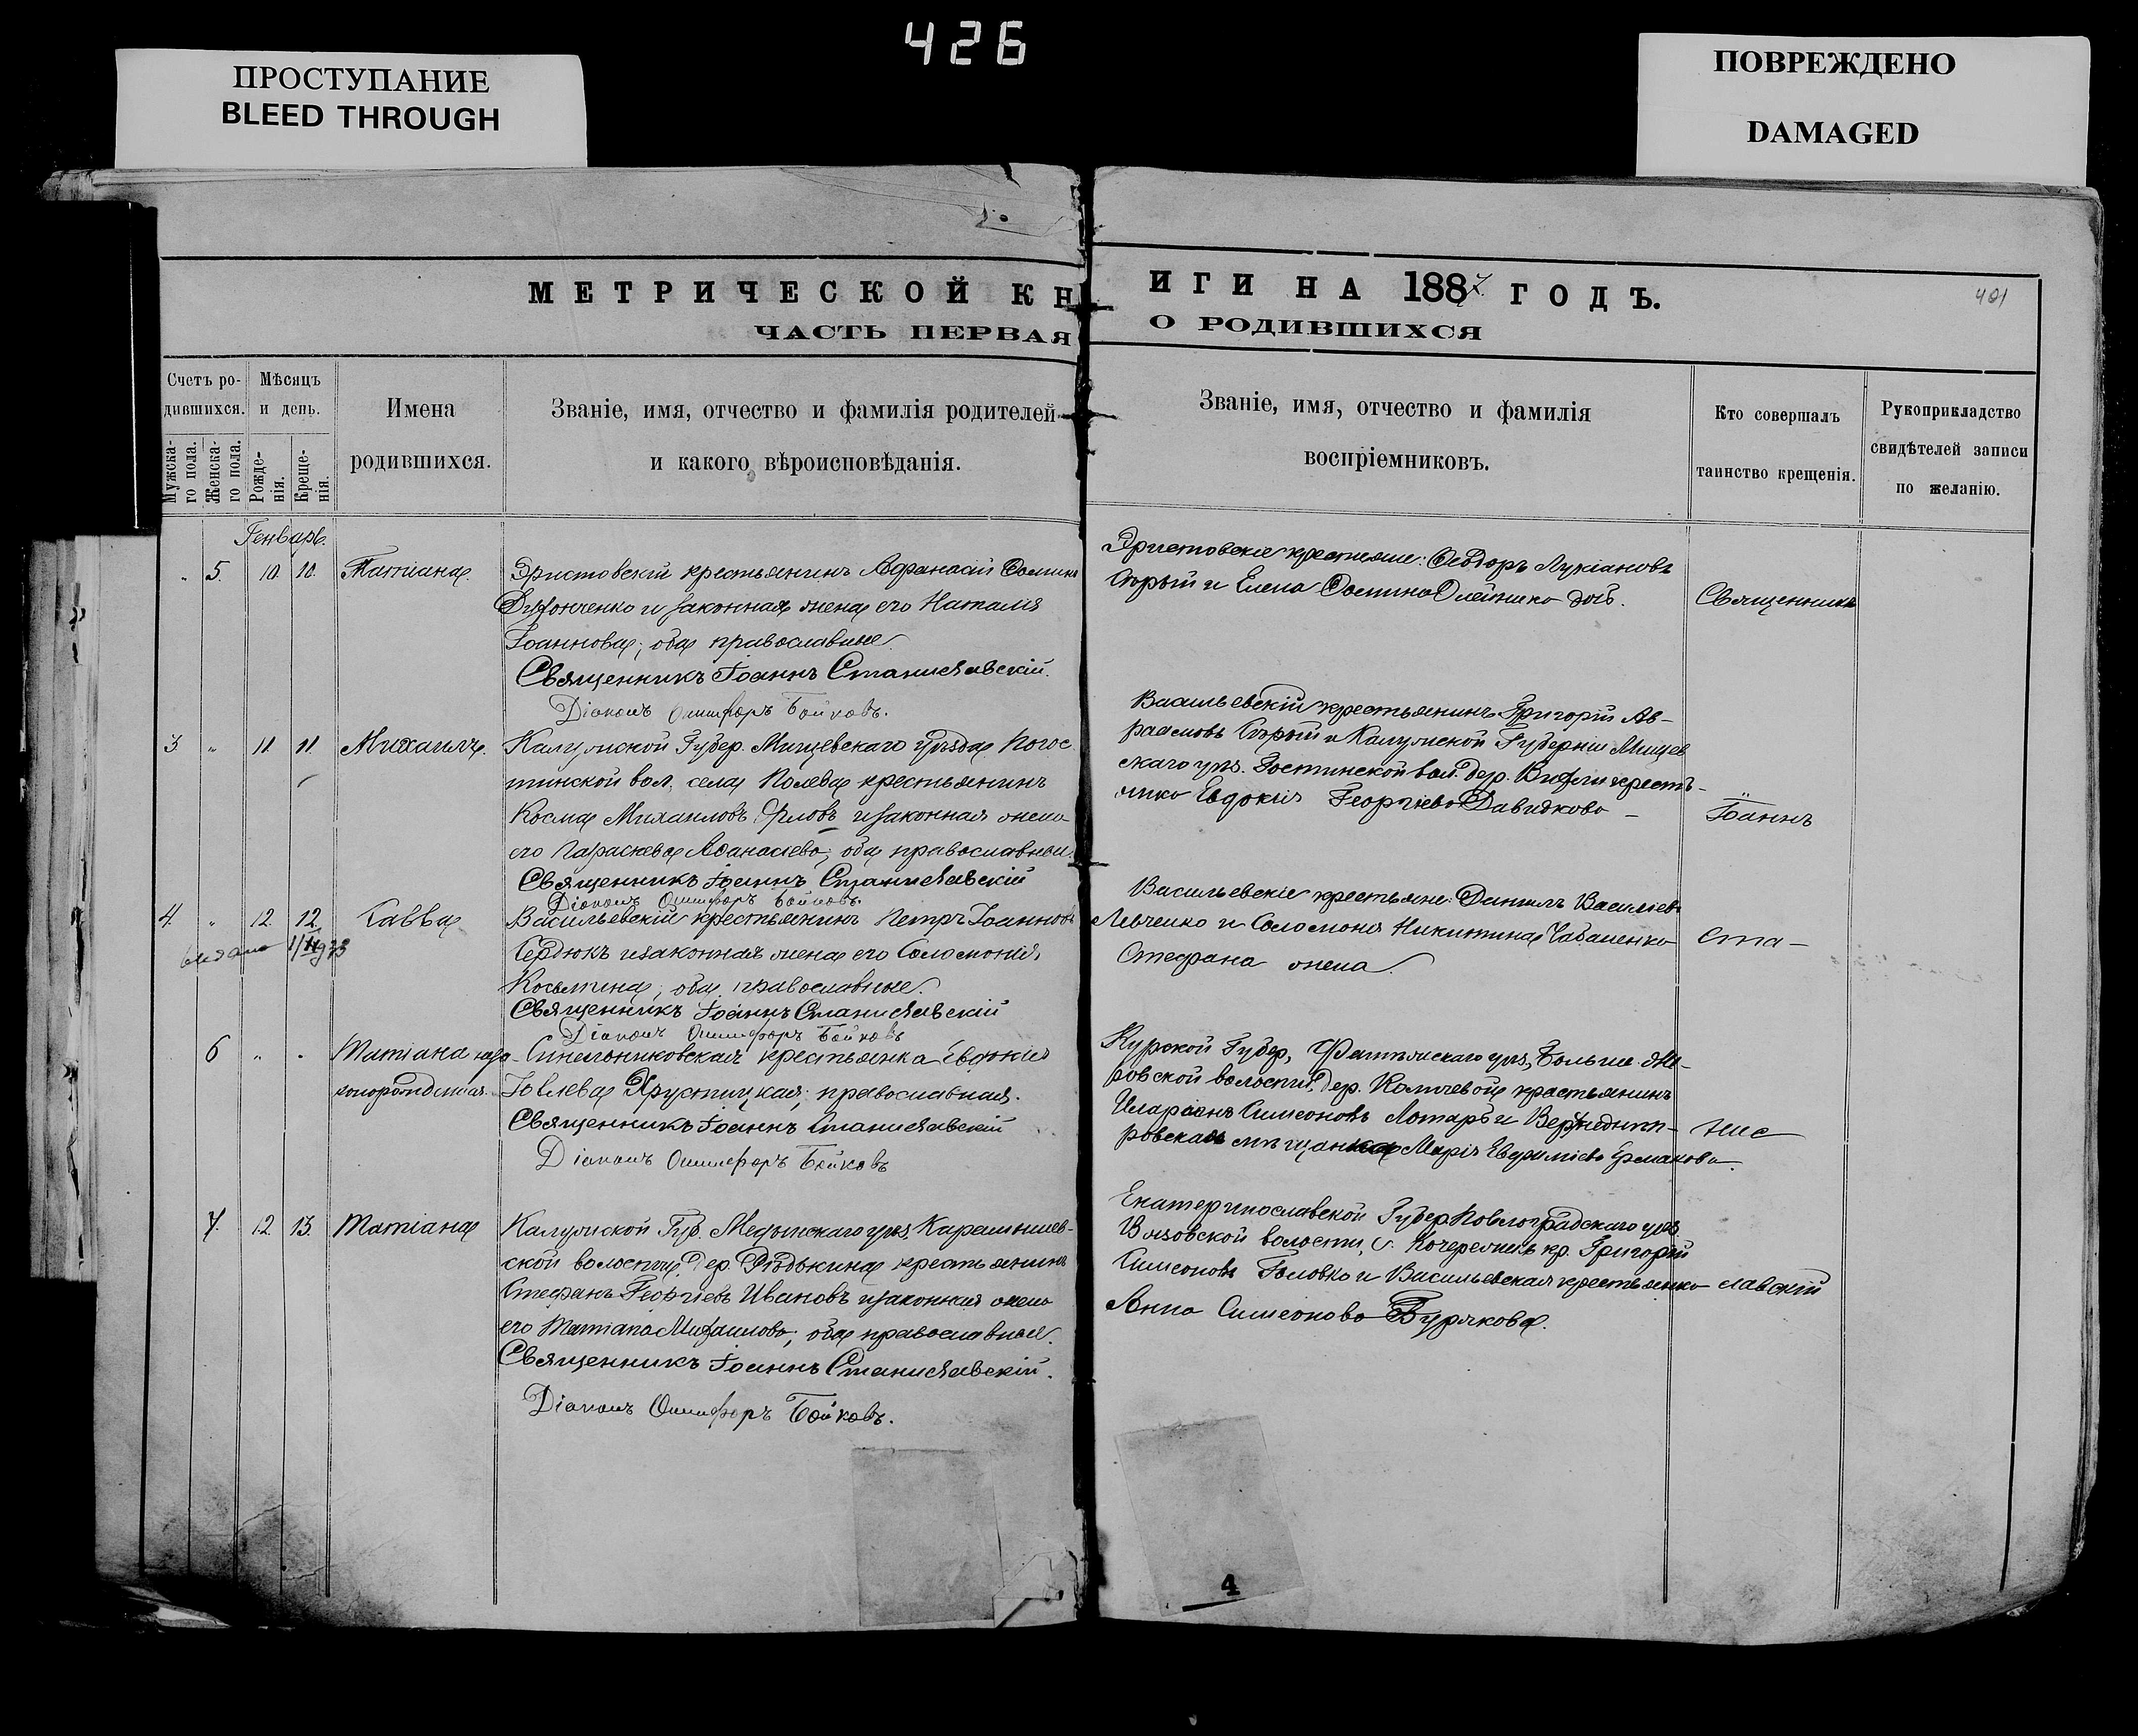 426
ПРОСТУПАНИЕ
BLEED THROUGH
ПОВРЕЖДЕНО
DAMAGED
МЕТРИЧЕСКОЙ КНИГИ НА 1887 ГОДЪ.
401
ЧАСТЬ ПЕРВАЯ О РОДИВШИХСЯ
Счетъ ро-
дившихся.
Мѣсяцъ
и день.
Имена
родившихся.
Званіе, имя, отчество и фамилія родителей
и какого вѣроисповѣданія.
Званіе, имя, отчество и фамилія
воспріемниковъ.
Кто совершалъ
таинство крещенія.
Рукоприкладство
свидѣтелей записи
по желанію.
Мужска-
го пола.
Женска-
го пола.
Рожде-
нія.
Креще-
нія.
Генварь.
" 5. 10. 10. Татіана.
крестьянинъ Афанасій
и законная жена его Наталія
Іоаннова; оба православные.
Священникъ Іоаннъ Станиславскій.
Діаконъ Онисифоръ Бойковъ.
крестьяне: Ѳеодоръ Лукіановъ
Сѣрый и Елена
Священникъ
3 " 11. 11. Михаилъ.
Калужской Губер. Мищевскаго уѣзда Погос
тинской вол. села Полева крестьянинъ
Косма Михаиловъ Орловъ и законная жена
его Параскева Аѳанасіева; оба православные.
Священникъ Іоаннъ Станиславскій
Діаконъ Онисифоръ Бойковъ.
Васильевскій крестьянинъ Григорій Ав-
раамовъ Сѣрый и Калужской Губерніи Мищев
скаго уѣз. вол. дер. кресть-
янка Евдокія Георгіева Давидкова
Іоаннъ
4. " 12. 12. Савва
выдано
Васильевскій крестьянинъ Петръ Іоанновъ
Сердюкъ и законная жена его Соломонія
Косьмина; оба православные.
Священникъ Іоаннъ Станиславскій
Діаконъ Онисифоръ Бойковъ
Васильевскіе крестьяне: Даніилъ Василіевъ
Левченко и Соломонія Никитина Чабаненко
Стефана жена.
Ста-
6 " " Татіана неза-
конорожденная.
Синельниковская крестьянка Евдокія
Іовлева Хрустицкая; православная.
Священникъ Іоаннъ Станиславскій
Діаконъ Онисифоръ Бойковъ
Курской Губер, уѣз, Больше-Жи-
ровской волости, дер. крестьянинъ
Иларіонъ Симеоновъ и Верхнеднѣп-
ровская мѣщанка Марія Евфиміева Ермакова.
нис
7. 12. 13. Татіана
Калужской Губ. Медынскаго уѣз, Карамышев-
ской волости, дер. Рѣдькина крестьянинъ
Стефанъ Георгіевъ Ивановъ и законная жена
его Татіана Михаилова; оба православные.
Священникъ Іоаннъ Станиславскій.
Діаконъ Онисифоръ Бойковъ.
Екатеринославской Губер. Павлоградскаго уѣз.
Вязовской волости, с. Кочережекъ кр. Григорій
Симеоновъ Головко и Васильевская крестьянка
Анна Симеонова Бурякова.
славскій
4